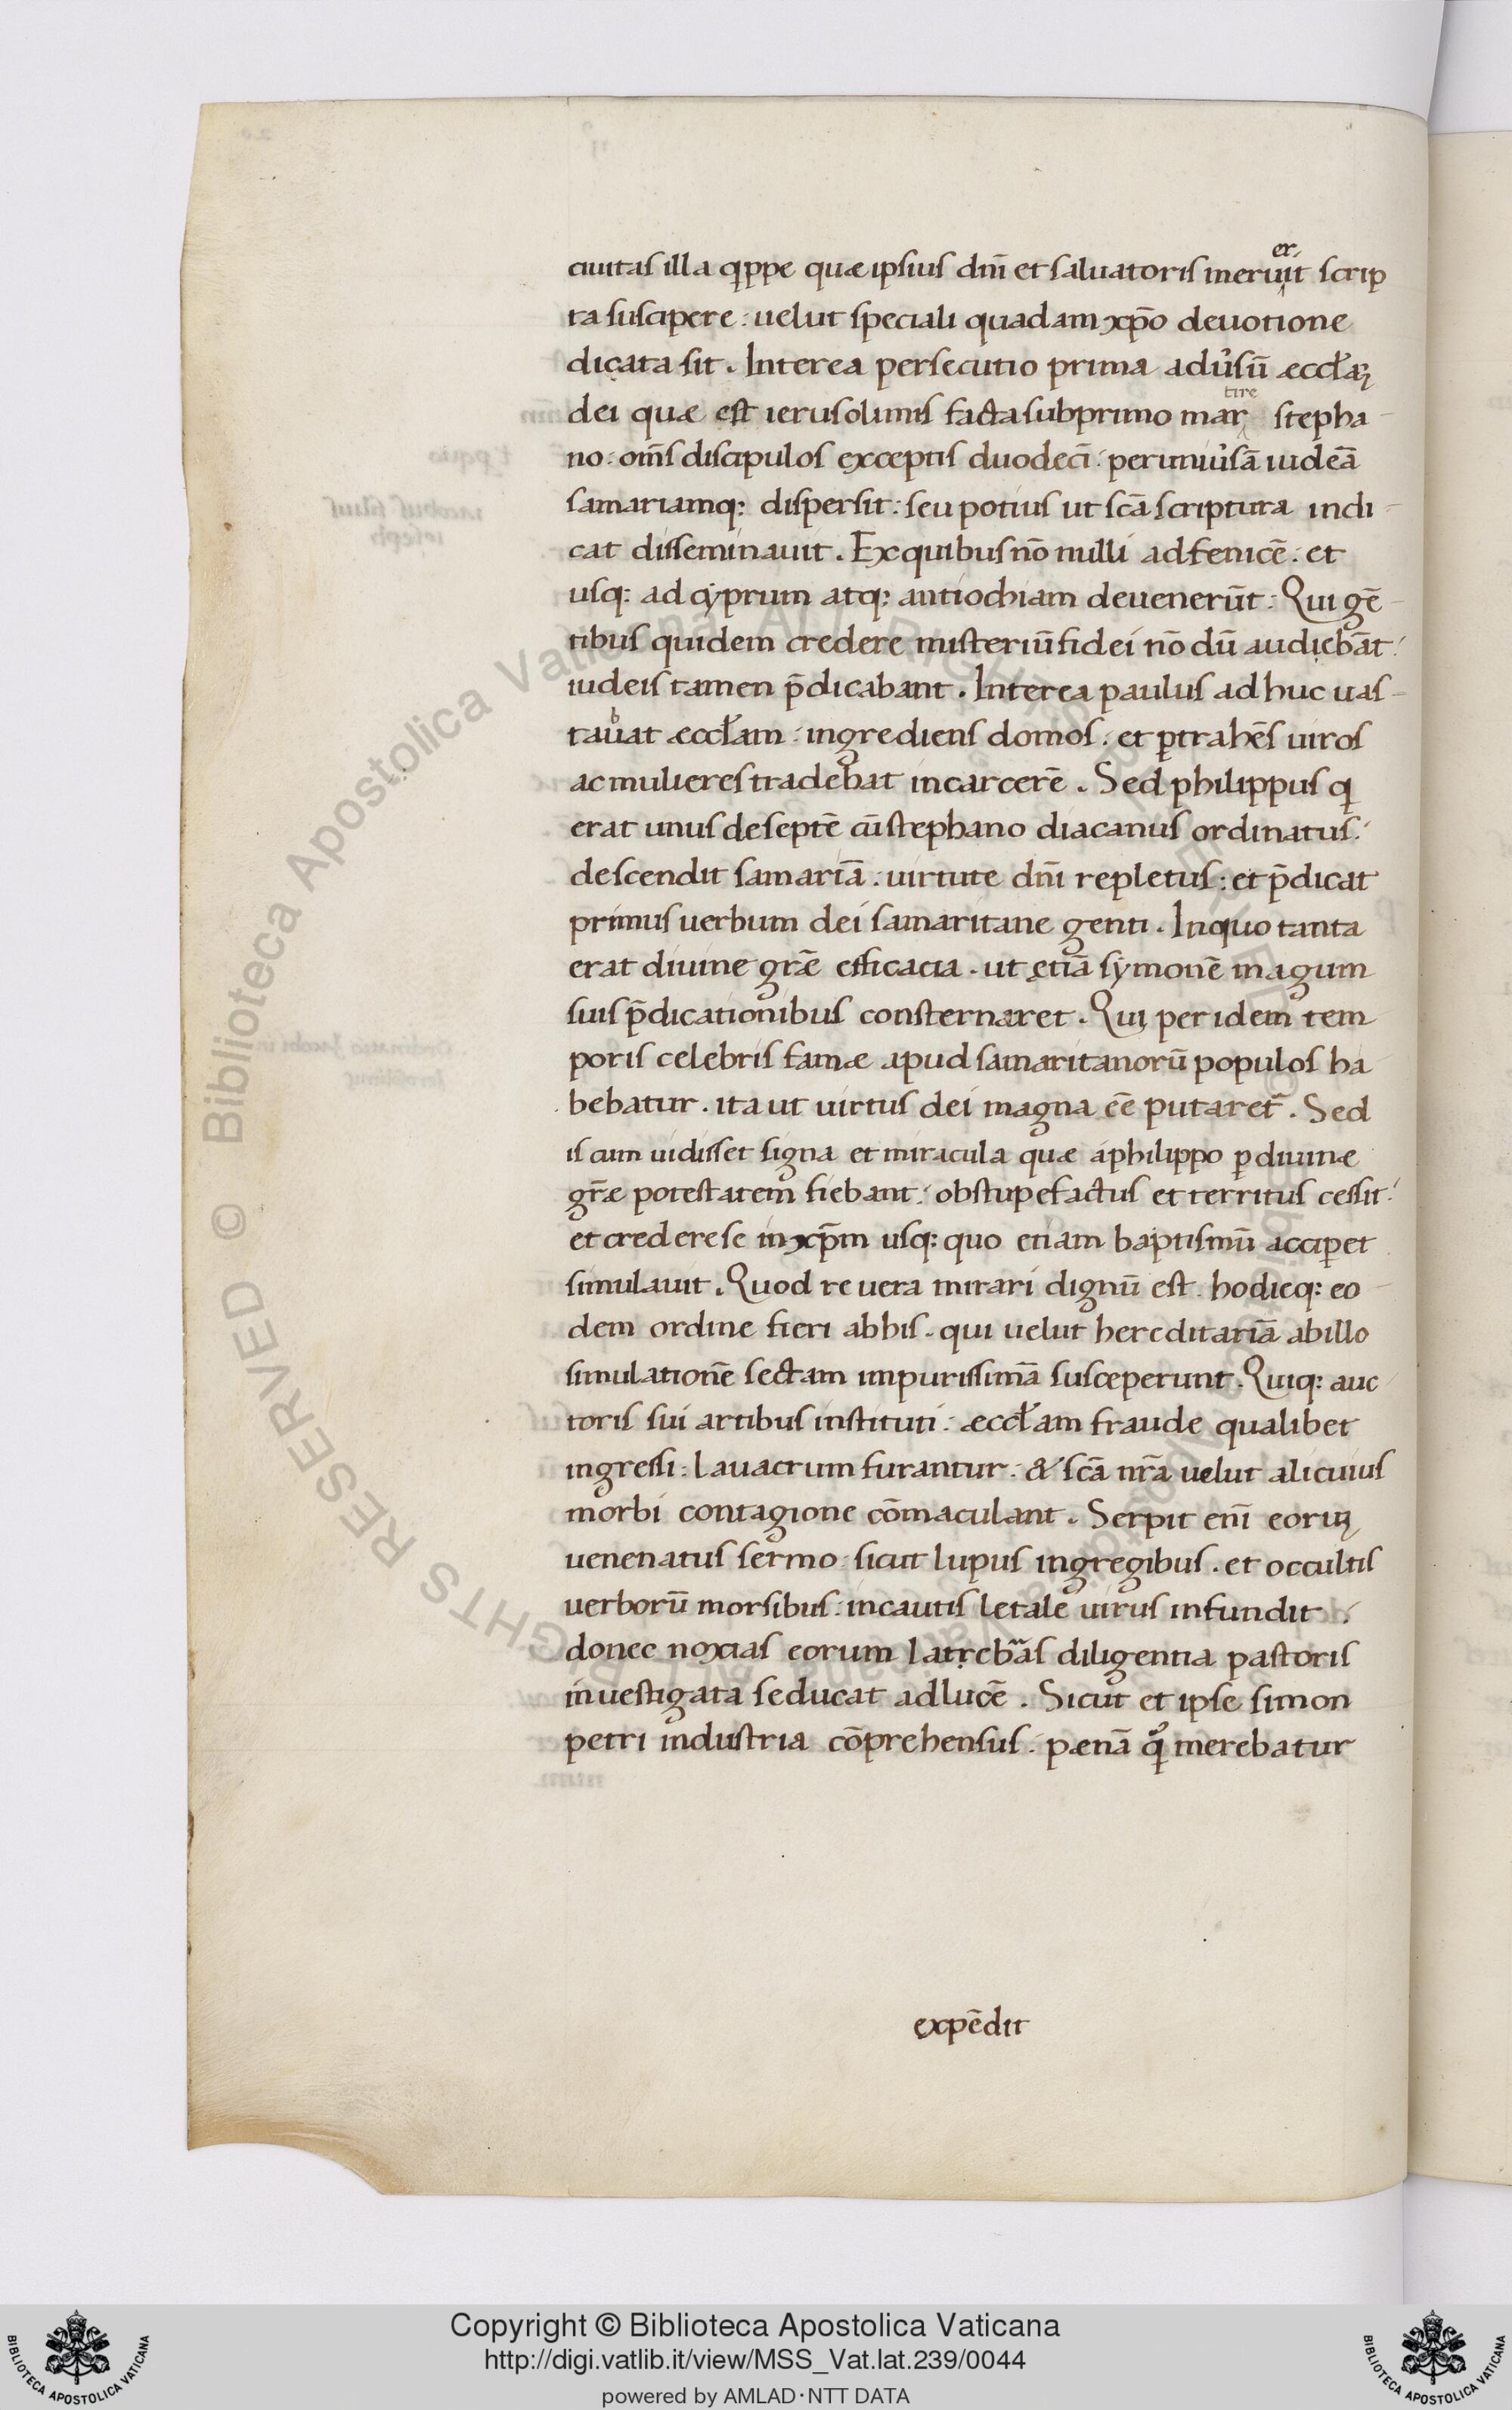 ciuitas illa qppe quæ ipsius dnī et saluatoris meruerit scrip
ta suscipere: uelut speciali quadam xp̄o deuotione
dicata sit. Interea persecutio prima adu̓sū æccƚaꝝ
dei quæ est ierusolimis facta sub primo martire stepha-
no: om̄s discipulos exceptis duodecī: per uniu̓sā iudeā
samariamq: dispersit: seu potius ut scā scriptura indi-
cat disseminauit. Ex quibus nō nulli ad fenicē: et
usq: ad cẏprum atq: antiochiam deuenerūt: Qui gē-
tibus quidem credere misteriū fidei nō dū audiebāt:
iudeis tamen p̄dicabant. Interea paulus ad huc uas-
tabat æccƚam: ingrediens domos: et ꝑtrahēs uiros
ac mulieres tradebat in carcerē. Sed philippus q
erat unus de septē cū stephano diacanus ordinatus:
descendit samariā: uirtute dnī repletus: et p̄dicat
primus uerbum dei samaritane genti. In quo tanta
erat diuine grē efficacia. ut ętiā sẏmonē magum
suis p̄dicationibus consternaret. Qui per idem tem
poris celebris famæ apud samaritanorū populos ha
bebatur. ita ut uirtus dei magna eē putaret᷑. Sed
is cum uidisset signa et miracula quæ a philippo ꝑ diuinæ
gr̄æ potestatem fiebant: obstupefactus et territus cessit:
et credere se in xp̄m usq: quo etiam baptismū acciꝑet
simulauit. Quod re uera mirari dignū est. hodieq: eo-
dem ordine fieri ab his. qui uelut hereditariā ab illo
simulationē sectam impurissimā susceperunt. Quiq: auc
toris sui artibus instituti: æccƚam fraude qualibet
ingressi: lauacrum furantur: & scā nr̄a uelut alicuius
morbi contagione cōmaculant. Serpit enī eoruꝫ
uenenatus sermo: sicut lupus in gregibus. et occultis
uerborū morsibus: incautis letale uirus infundit:
donec noxias eorum latebras diligentia pastoris
inuestigata seducat ad lucē. Sicut et ipse simon
petri industria cōprehensus: pænā q merebatur
expēdit
Copyright © Biblioteca Apostolica Vaticana
http://digi.vatlib.it/view/MSS_Vat.lat.239/0044
powered by AMLAD·NTT DATA
BIBLIOTECA APOSTOLICA VATICANA
BIBLIOTECA APOSTOLICA VATICANA